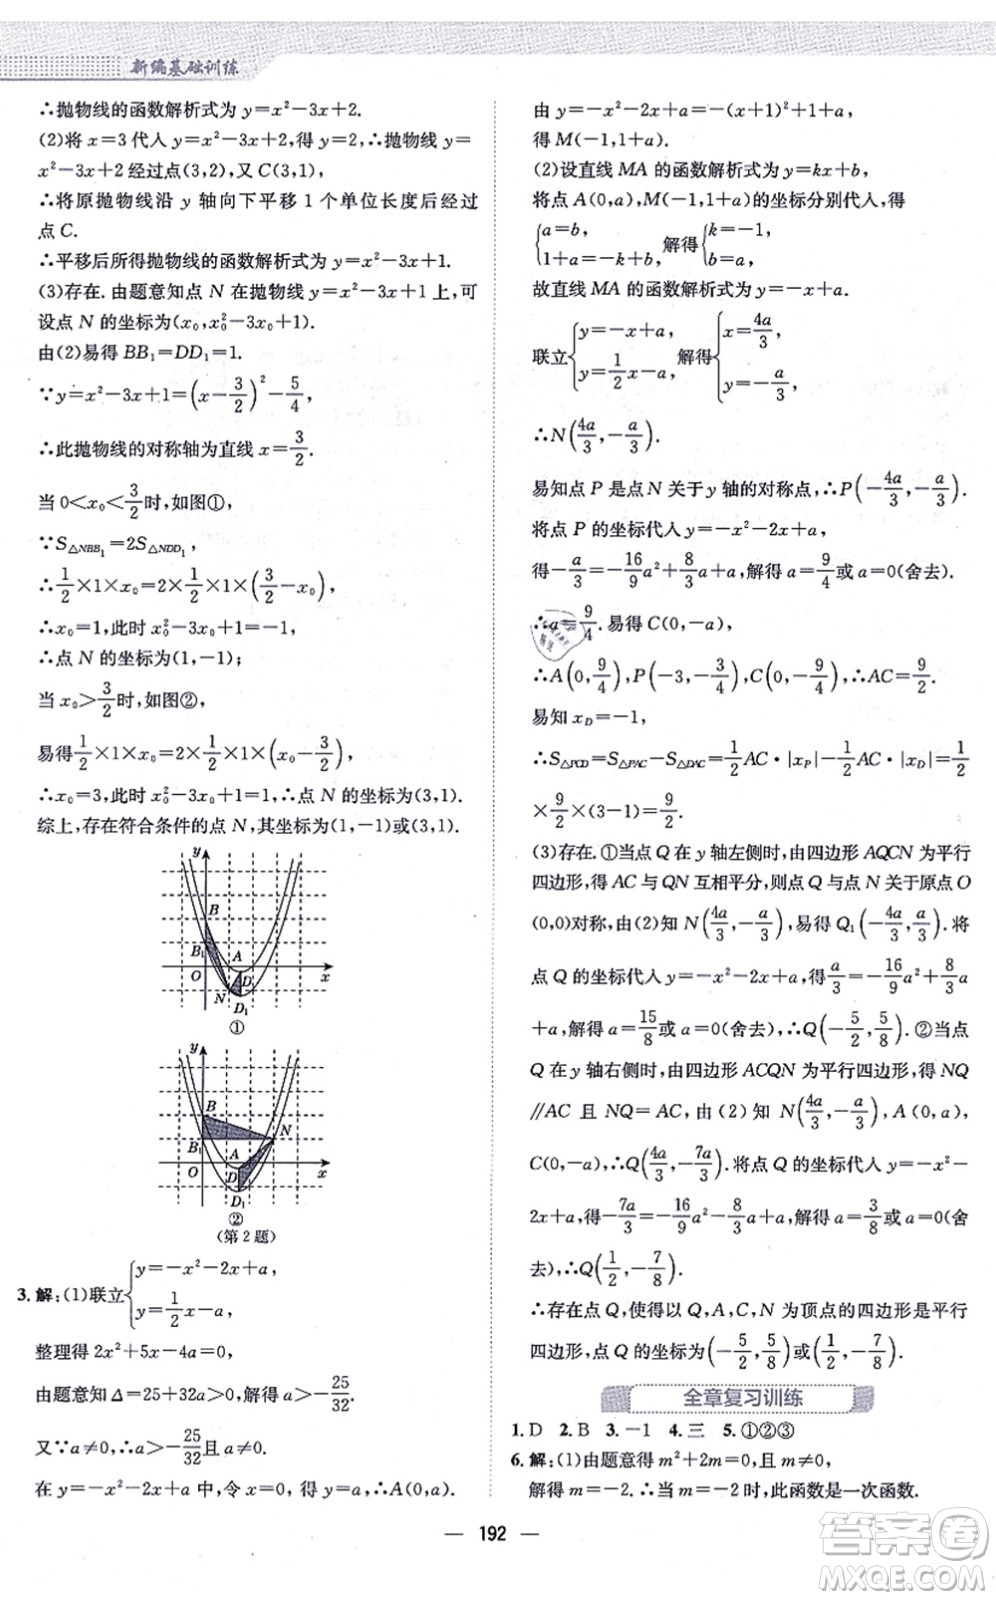 新编基础训练
∴抛物线的函数解析式为 y=x²-3x+2.
(2)将 x=3 代入 y=x²-3x+2,得 y=2,∴抛物线 y=
x²-3x+2 经过点(3,2),又 C(3,1),
∴将原抛物线沿 y 轴向下平移 1 个单位长度后经过
点 C.
∴平移后所得抛物线的函数解析式为 y=x²-3x+1.
(3)存在. 由题意知点 N 在抛物线 y=x²-3x+1 上,可
设点 N 的坐标为(x₀,x₀²-3x₀+1).
由(2)易得 BB₁=DD₁=1.
∵y=x²-3x+1=(x-3/2)²-5/4,
∴此抛物线的对称轴为直线 x=3/2.
当 0<x₀<3/2时,如图①,
∵S△NBB₁=2S△NDD₁,
∴1/2×1×x₀=2×1/2×1×(3/2-x₀),
∴x₀=1,此时 x₀²-3x₀+1=-1,
∴点 N 的坐标为(1,-1);
当 x₀>3/2时,如图②,
易得1/2×1×x₀=2×1/2×1×(x₀-3/2),
∴x₀=3,此时 x₀²-3x₀+1=1,∴点 N 的坐标为(3,1).
综上,存在符合条件的点 N,其坐标为(1,-1)或(3,1).
y
B
B₁
A
O
D
N
D₁
x
①
y
B
B₁
A
N
O
D
D₁
x
②
(第 2 题)
3. 解:(1)联立{y=-x²-2x+a, y=1/2x-a,
整理得 2x²+5x-4a=0,
由题意知 Δ=25+32a>0,解得 a>-25/32.
又∵a≠0,∴a>-25/32且 a≠0.
在 y=-x²-2x+a 中,令 x=0,得 y=a,∴A(0,a).
由 y=-x²-2x+a=-(x+1)²+1+a,
得 M(-1,1+a).
(2)设直线 MA 的函数解析式为 y=kx+b,
将点 A(0,a),M(-1,1+a)的坐标分别代入,得
{a=b, 1+a=-k+b,解得{k=-1, b=a,
故直线 MA 的函数解析式为 y=-x+a.
联立{y=-x+a, y=1/2x-a,解得{x=4a/3, y=-a/3,
∴N(4a/3,-a/3).
易知点 P 是点 N 关于 y 轴的对称点,∴P(-4a/3,-a/3).
将点 P 的坐标代入 y=-x²-2x+a,
得-a/3=-16/9a²+8/3a+a,解得 a=9/4或 a=0(舍去).
∴a=9/4.易得 C(0,-a),
∴A(0,9/4),P(-3,-3/4),C(0,-9/4),∴AC=9/2.
易知 x_D=-1,
∴S△PCD=S△PAC-S△DAC=1/2AC·|x_P|-1/2AC·|x_D|=1/2
×9/2×(3-1)=9/2.
(3)存在.①当点 Q 在 y 轴左侧时,由四边形 AQCN 为平行
四边形,得 AC 与 QN 互相平分,则点 Q 与点 N 关于原点 O
(0,0)对称,由(2)知 N(4a/3,-a/3),易得 Q₁(-4a/3,a/3).将
点 Q 的坐标代入 y=-x²-2x+a,得a/3=-16/9a²+8/3a
+a,解得 a=15/8或 a=0(舍去),∴Q(-5/2,5/8).②当点
Q 在 y 轴右侧时,由四边形 ACQN 为平行四边形,得 NQ
∥AC 且 NQ=AC,由(2)知 N(4a/3,-a/3),A(0,a),
C(0,-a),∴Q(4a/3,-7a/3).将点 Q 的坐标代入 y=-x²-
2x+a,得-7a/3=-16/9a²-8/3a+a,解得 a=3/8或 a=0(舍
去),∴Q(1/2,-7/8).
∴存在点 Q,使得以 Q,A,C,N 为顶点的四边形是平行
四边形,点 Q 的坐标为(-5/2,5/8)或(1/2,-7/8).
全章复习训练
1. D 2. B 3. -1 4. 三 5. ①②③
6. 解:(1)由题意得 m²+2m=0,且 m≠0,
解得 m=-2.∴当 m=-2 时,此函数是一次函数.
— 192 —
答案圈
MXQE.COM